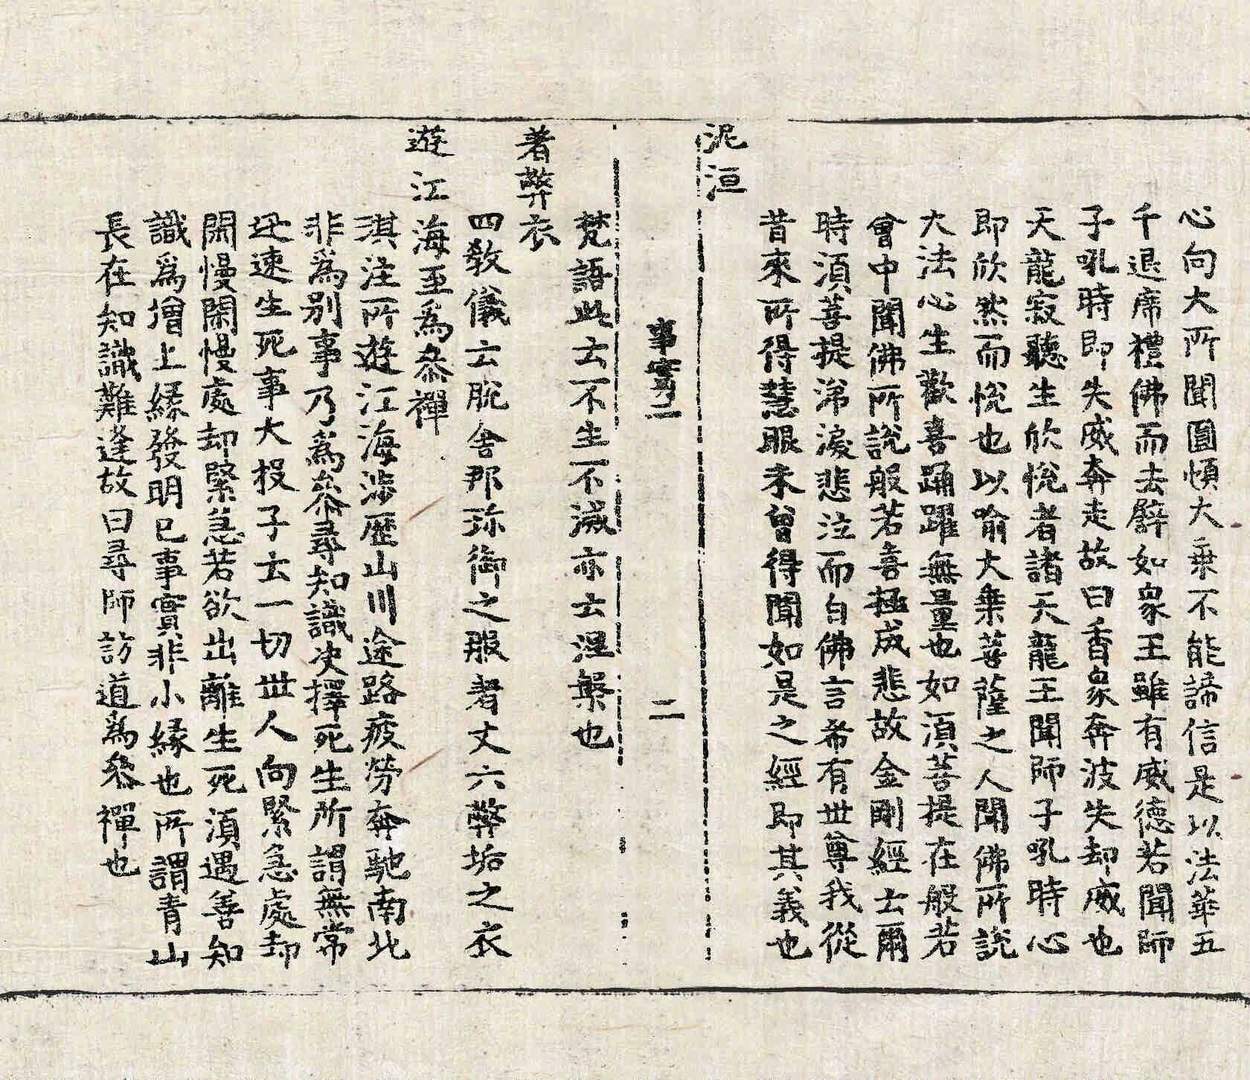 心向大所聞圓頓大乗不能諦信是以法華五
千退席禮佛而去譬如象王雖有威德若聞師
子吼時即失威奔走故曰香象奔波失却威也
天龍寂聽生欣悅者諸天龍王聞師子吼時心
即欣然而悅也以喻大乗菩薩之人聞佛所說
大法心生歡喜踊躍無量也如湏菩提在般若
會中聞佛所說般若喜極成悲故金剛經云爾
時湏菩提涕淚悲泣而白佛言希有世尊我從
昔來所得慧眼未曾得聞如是之經即其義也
泥洹
事實二
二
梵語此云不生不滅亦云涅槃也
著弊衣
四教儀云脫舍那珎御之服著丈六弊垢之衣
遊江海至爲叅禪
淇注所遊江海涉歷山川途路疲勞奔馳南北
非爲別事乃爲叅尋知識决擇死生所謂無常
迅速生死事大投子云一切世人向緊急處却
閑慢閑慢處却緊急若欲出離生死湏遇善知
識爲增上緣發明已事實非小緣也所謂青山
長在知識難逢故曰尋師訪道爲叅禪也